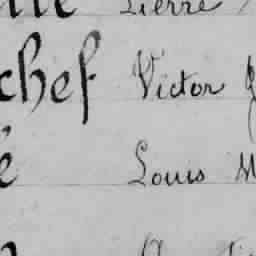 Pierre
chef Victor
é Louis M